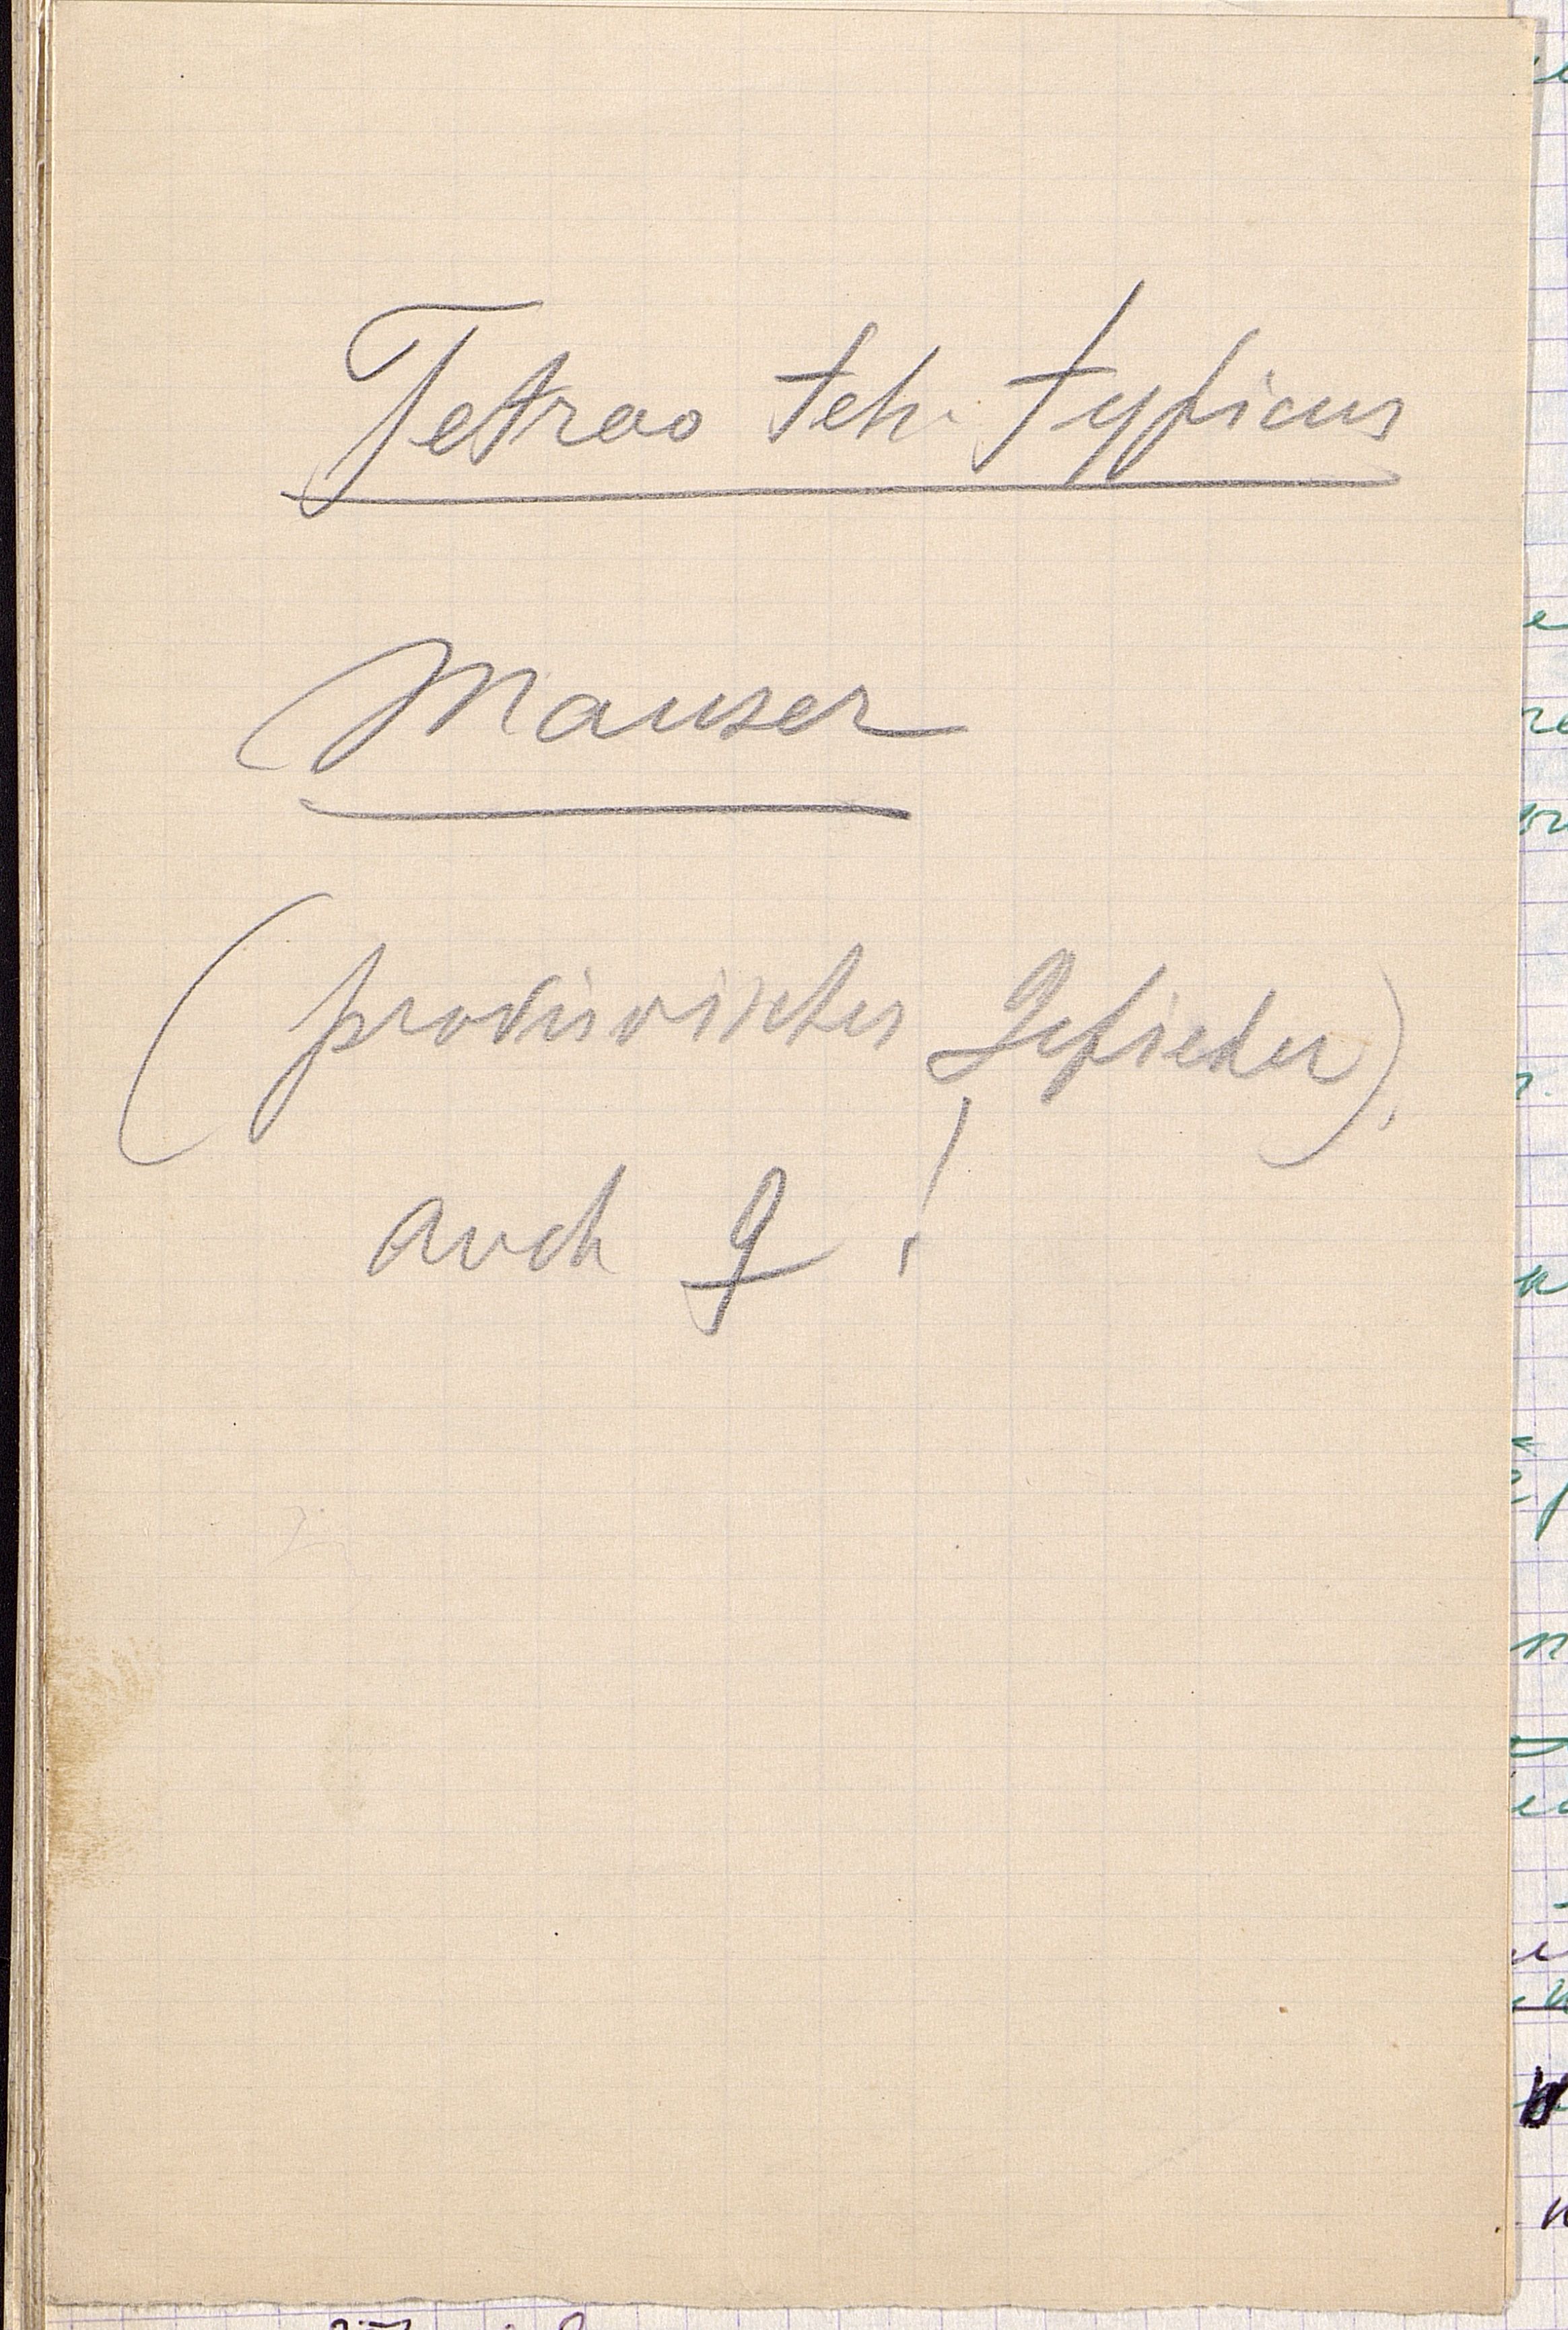 Tetrao teh. typicus
Mauser
(provisorisches Gefieder),
auch ♀ !